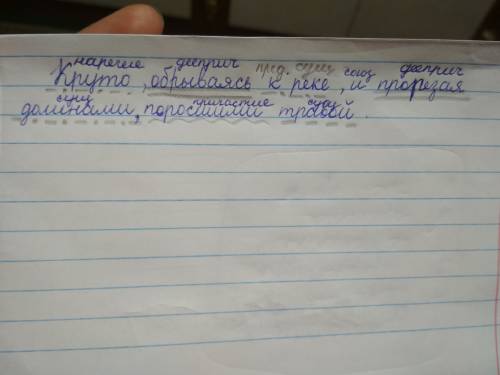 наречие дееприч пред. сущ союз дееприч
Круто, обрываясь к реке, и прорезая
сущ причастие сущ
долинами, поросшими травой.